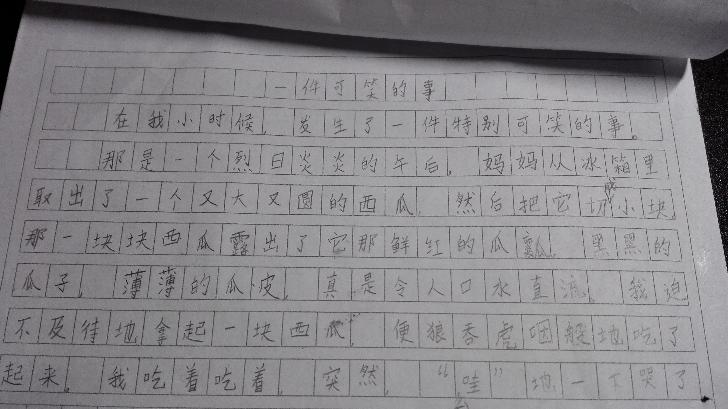 一件可笑的事
在我小时候，发生了一件特别可笑的事。
那是一个烈日炎炎的午后，妈妈从冰箱里
取出了一个又大又圆的西瓜，然后把它切成小块，
那一块块西瓜露出了它那鲜红的瓜瓤，黑黑的
瓜子，薄薄的瓜皮，真是令人口水直流，我迫
不及待地拿起一块西瓜，便狼吞虎咽般地吃了
起来。我吃着吃着，突然，“哇”地一下哭了